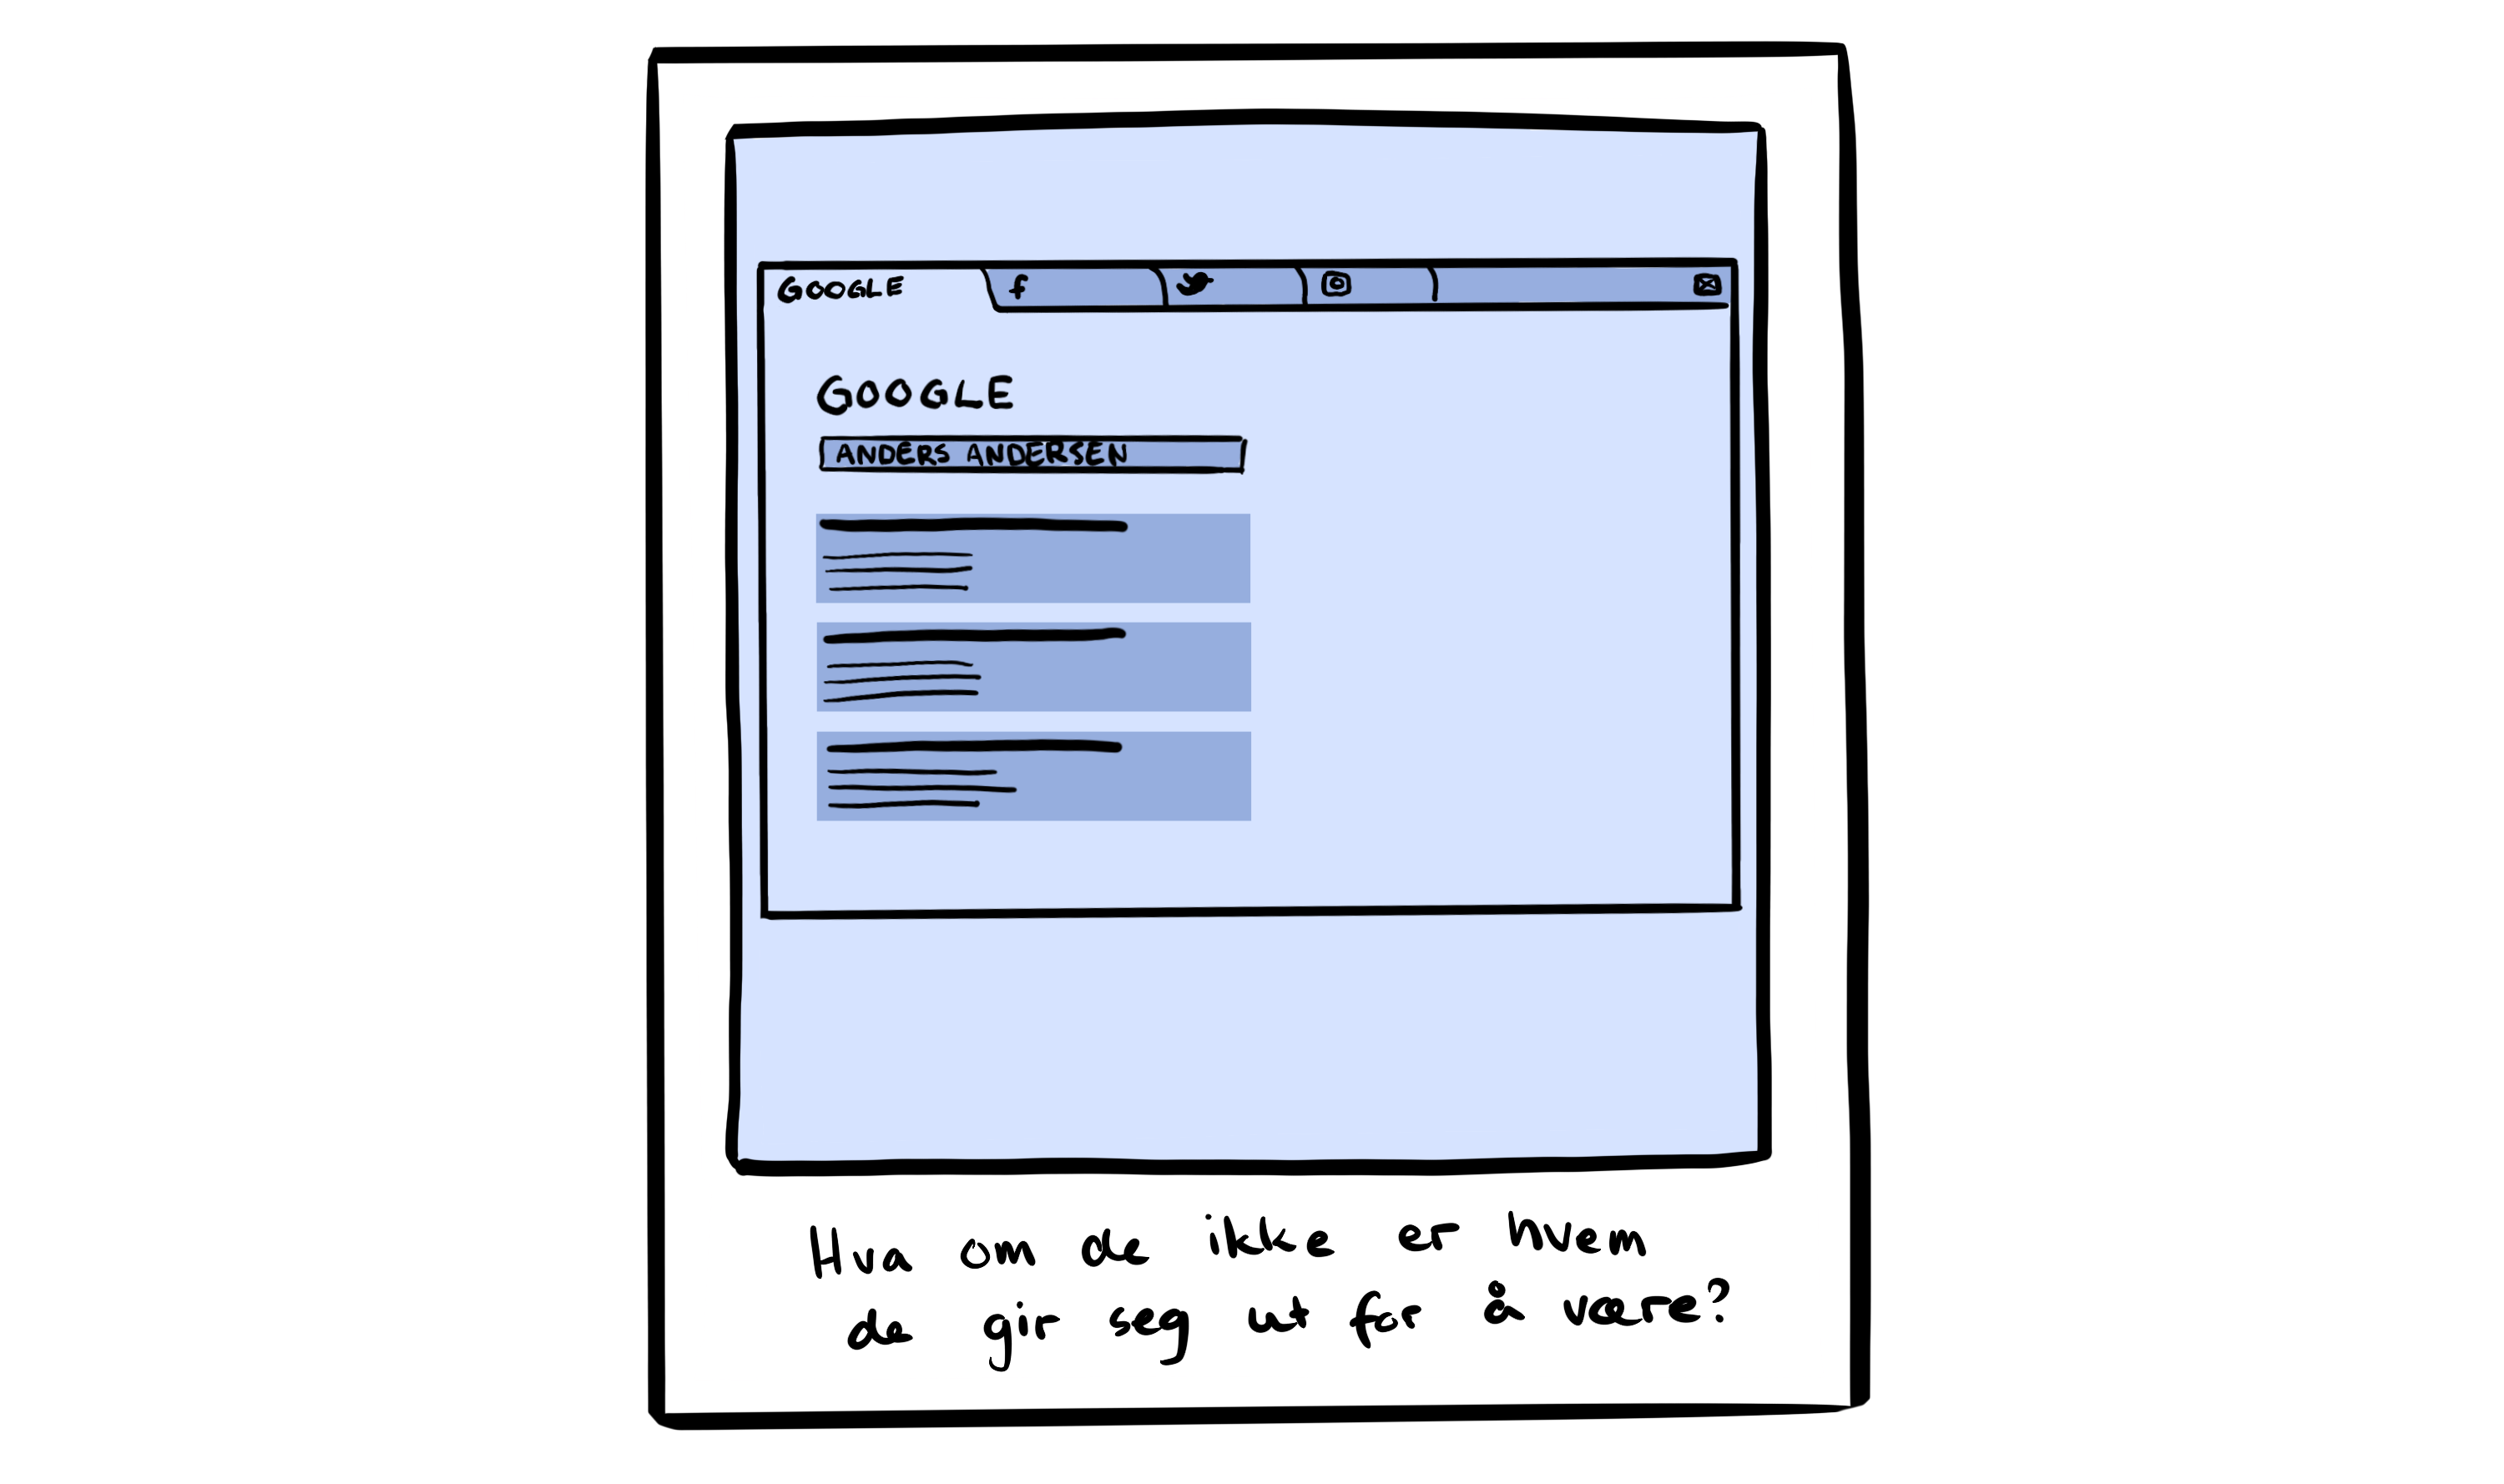 GOOGLE
GOOGLE
ANDERS ANDERSEN
Hva om de ikke er hvem
de gir seg ut for å være?